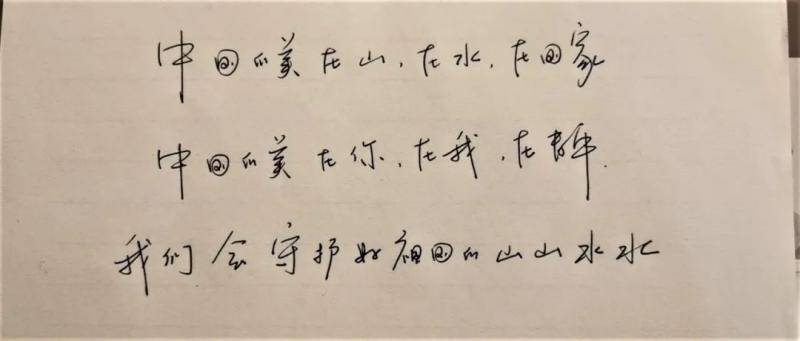 中国的美在山.在水.在国家
中国的美在你.在我.在青年.
我们会守护好祖国的山山水水